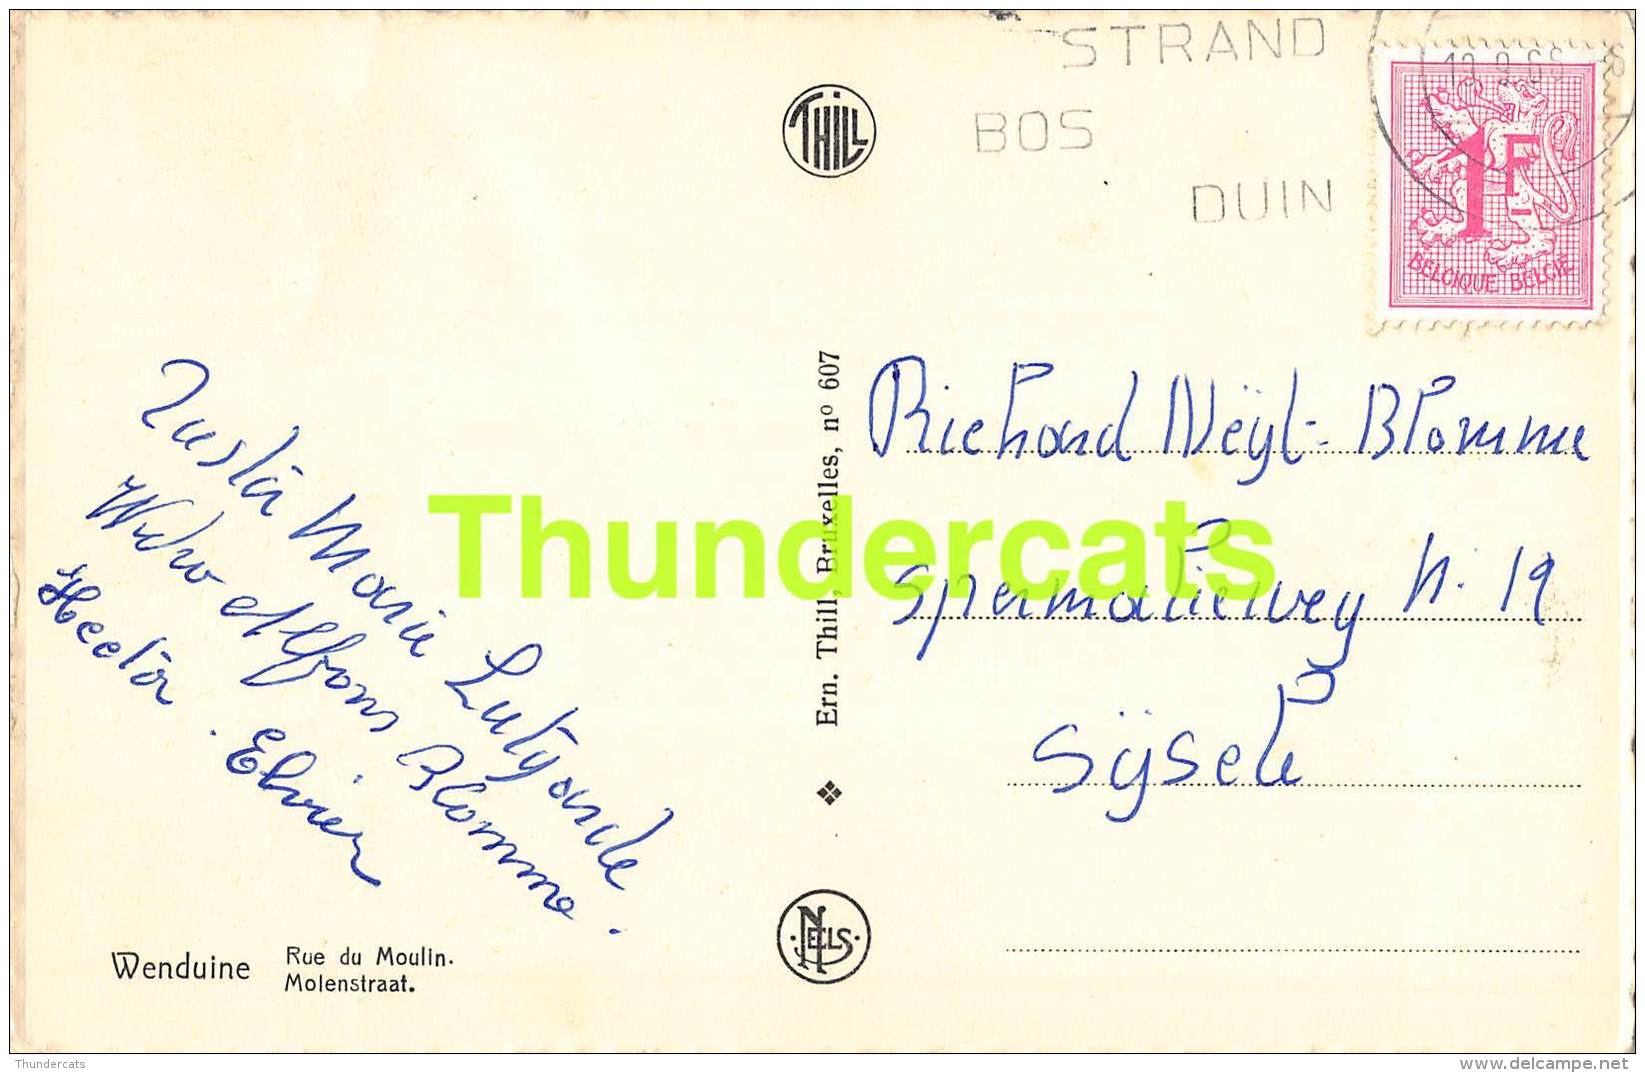 STRAND
BOS
DUIN
THILL
1F
BELGIQUE BELGIË
Richard Neÿt-Blomme
Spermaliewey N. 19
Sÿsele
Zuster Marie Lutgarde
Wedw Alfons Blomme.
Hector. Elvier
Ern. Thill, Bruxelles, nº 607
NELS
Wenduine
Rue du Moulin.
Molenstraat.
Thundercats
Thundercats
www.delcampe.net